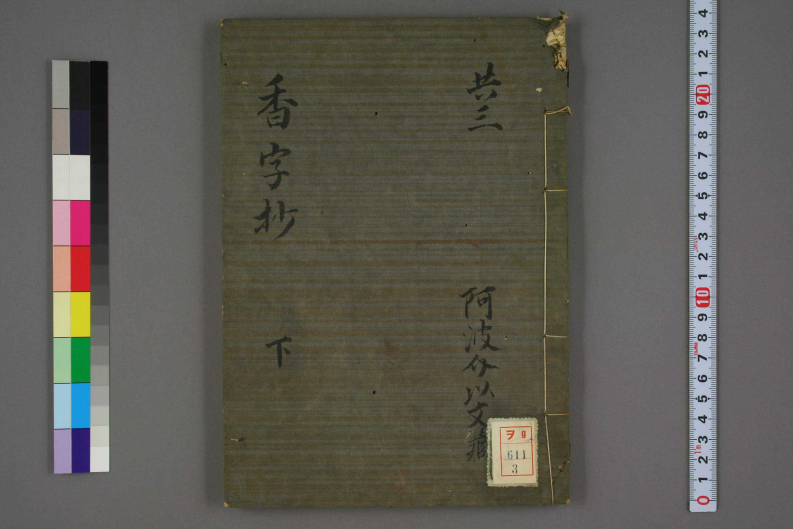 共三
阿波介以文蔵
香字抄
下
ヲ9
611
3
4
3
2
1
20
9
8
7
6
5
4
3
2
1
10
9
8
7
6
5
4
3
2
1
0